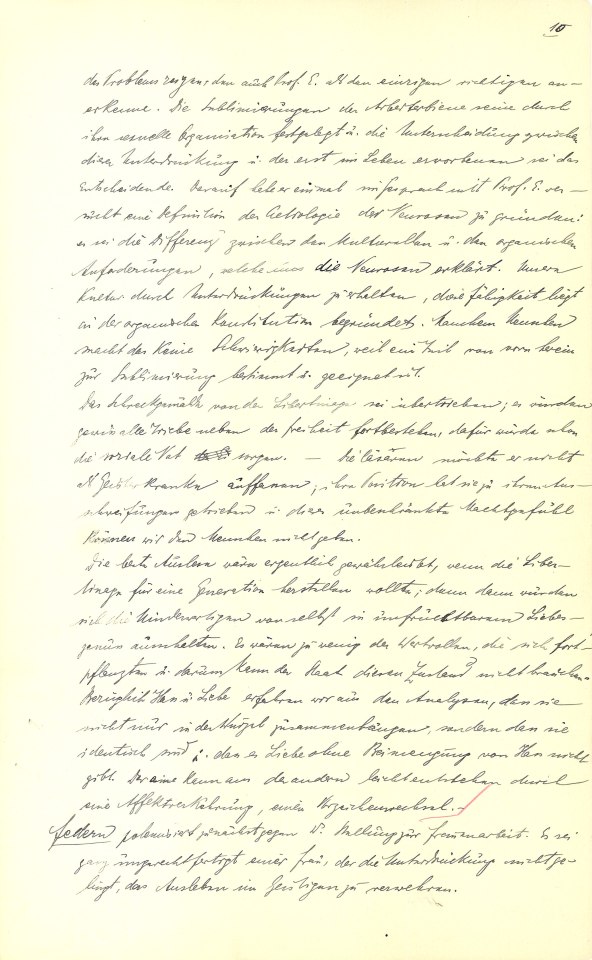 10
des Problems zeigen, den auch Prof. E. als den einzigen richtigen an-
erkenne. Die Sublimierungen der Arbeiterbiene seine durch
ihre sexuelle Organisation festgelegt u. die Unterscheidung zwischen
dieser Unterdrückung u. der erst im Leben erworbenen sei das
Entscheidende. Darauf habe er einmal im Gespräch mit Prof. E. ver-
sucht eine Definition der Aetiologie der Neurosen zu gründen:
es sei die Differenz zwischen den kulturellen u. den organischen
Anforderungen, welche die Neurosen erklärt. Unsere
Kultur durch Unterdrückungen zu erhalten, diese Fähigkeit liegt
in der organischen Konstitution begründet. Manchem Menschen
macht das keine Schwierigkeiten, weil ein Teil von vorn herein
zur Sublimierung bestimmt u. geeignet ist.
Das Schreckgemälde von der Libertinage sei übertrieben; es würden
gewiss alle Triebe neben der Freiheit fortbestehen, dafür würde schon
die soziale Not sorgen. — Die Cäsaren möchte er nicht
als Geisteskranke auffassen; ihre Position hat sie zu ihren Aus-
schweifungen getrieben u. dieses unbeschränkte Machtgefühl
können wir den Menschen nicht geben.
Die beste Auslese wäre eigentlich gewährleistet, wenn die Liber-
tinage für eine Generation herstellen wollte; denn dann würden
sich die Minderwertigen von selbst in unfruchtbarem Liebes-
genuss ausschalten. Es wären zu wenig der Wertvollen, die sich fort-
pflanzten u. darum kann der Staat diesen Zustand nicht brauchen.
Bezüglich Hass u. Liebe erfahren wir aus den Analysen, dass sie
nicht nur in der Wurzel zusammenhängen, sondern dass sie
identisch sind u. dass es Liebe ohne Beimengung von Hass nicht
gibt. Der eine kann aus der andern leicht entstehen durch
eine Affektverkehrung, einen Vorzeichenwechsel.—
Federn polemisiert zunächst gegen W. Stellung zur Frauenarbeit. Es sei
ganz ungerechtfertigt einer Frau, der die Unterdrückung nicht ge-
lingt, das Ausleben im Geistigen zu verwehren.